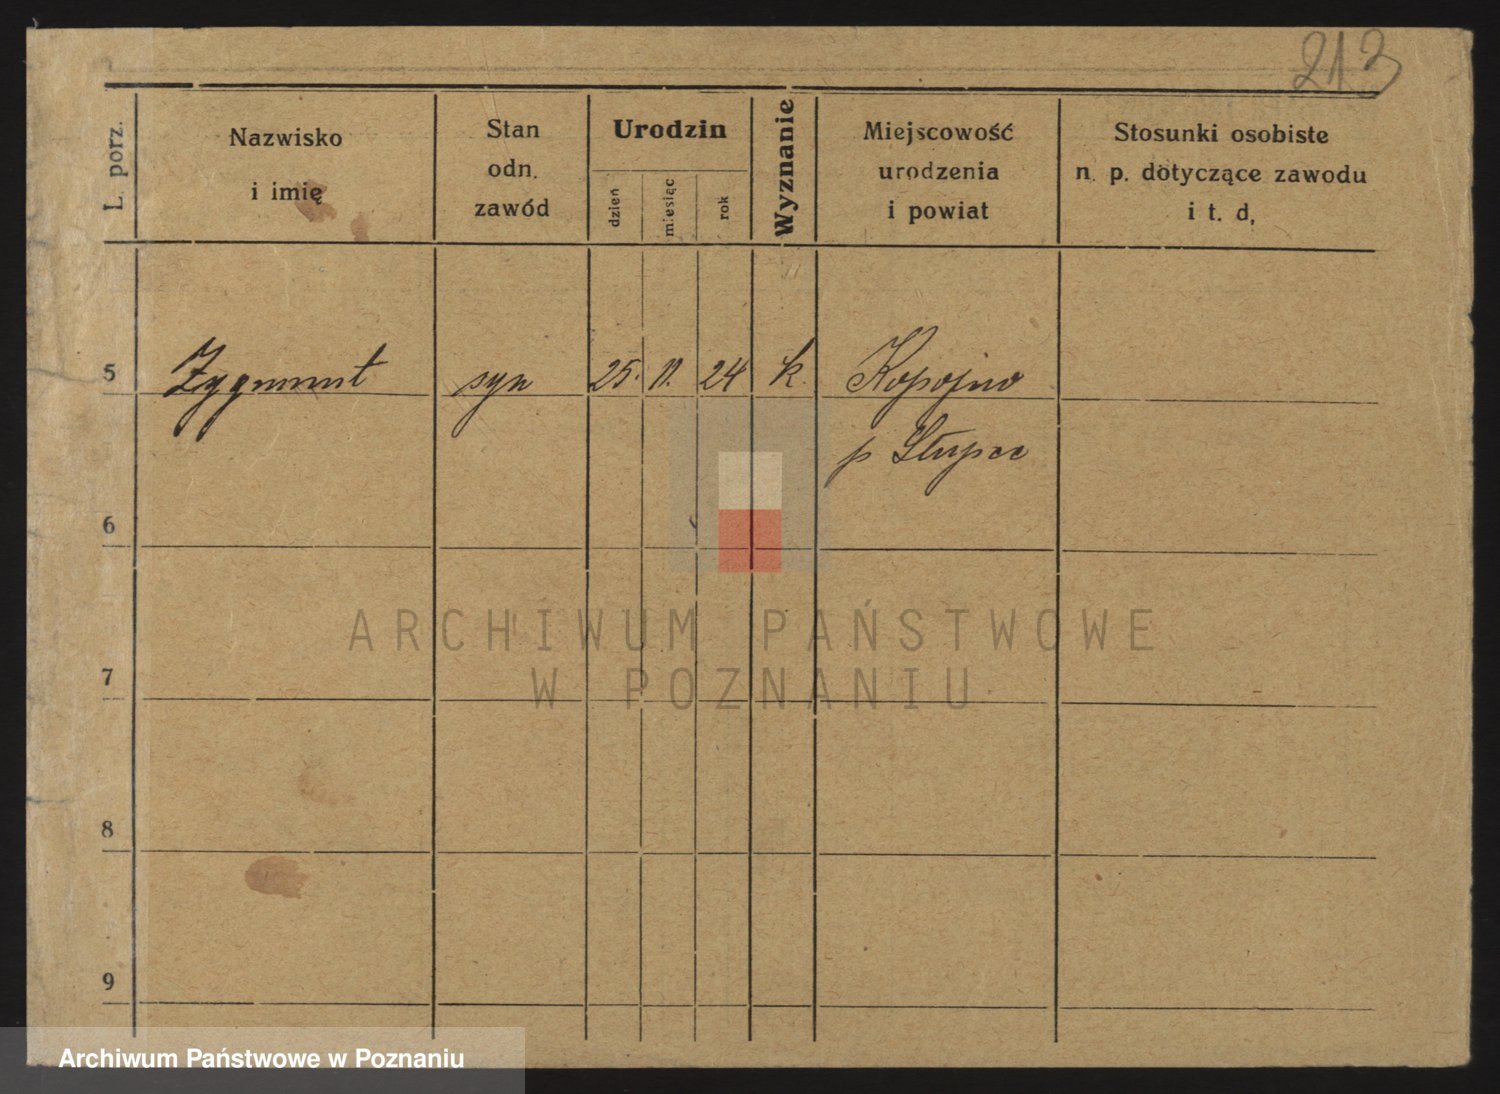 213
L. porz.
Nazwisko
i imię
Stan
odn.
zawód
Urodzin
dzień
miesiąc
rok
Wyznanie
Miejscowość
urodzenia
i powiat
Stosunki osobiste
n. p. dotyczące zawodu
i t. d,
5 Zygmunt syn 25. 11. 24 k. Kopojno
p Słupca
6
7
8
9
ARCHIWUM PAŃSTWOWE
W POZNANIU
Archiwum Państwowe w Poznaniu